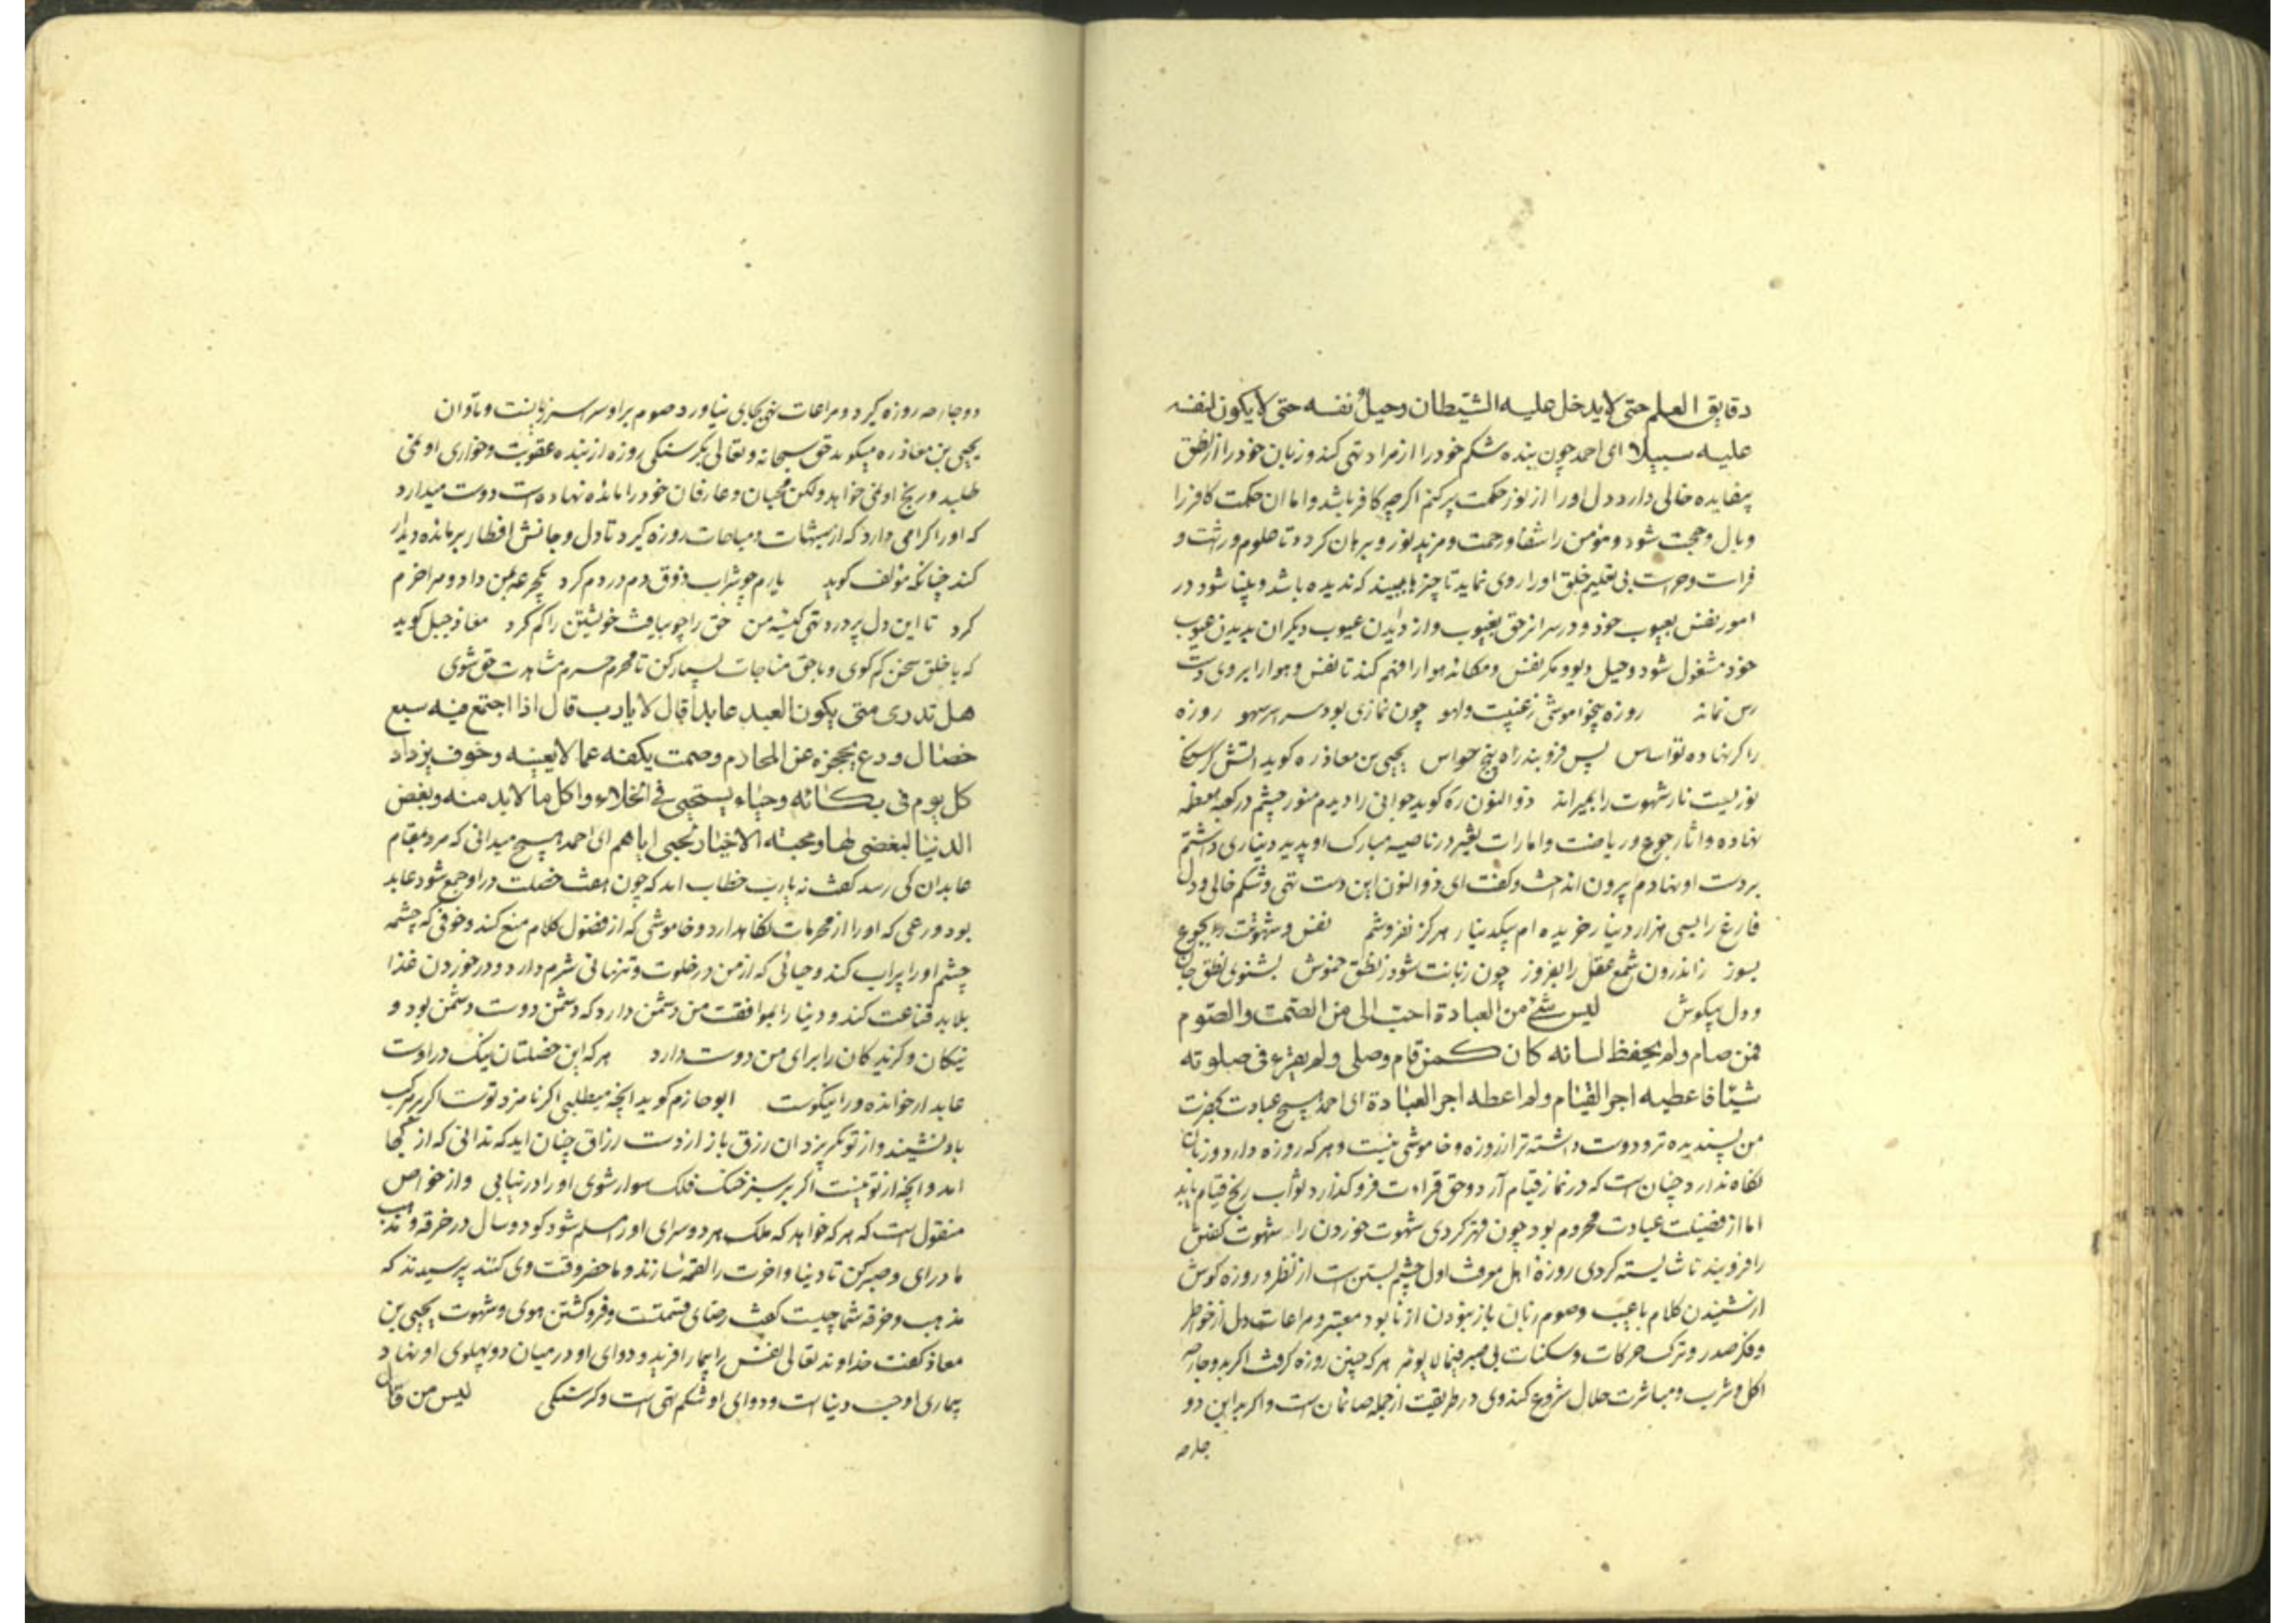 دقایق العلم حتی لا یدخل علیه الشیطان وحیل نفسه حتی لا یکون لنفسه
علیه سبیلا ای احمد چون بنده شکم خود را از مراد تهی کند و زبان خود را از نطق
بیفایده خالی دارد دل او را از نور حکمت پر کنم اگر چه کافر باشد و اما ان حکمت کافر را
وبال و حجت شود و مؤمن را شفا و رحمت و مزید نور و برهان کردد تا علوم وراثت و
فراست بی تعلیم خلق او را روی نماید تا چیزها ببیند که ندیده باشد و بینا شود در
امور نفس بعیوب خود و در سر از حق بغیوب و از دیدن عیوب دیکران بدیدن عیوب
خود مشغول شود و حیل دیو و مکر نفس و مکائد هوا را فهم کند تا نفس و هوا را بروی دست
رس نماند روزه بیخواموشی رغیبت و لهو چون نمازی بود سراسر سهو روزه
را کر نهاده تو اساس پس فرو بند راه پنج حواس یحیی بن معاذ ره کوید اتش کرسنکی
نوریست نار شهوت را بمیراند ذو النون ره کوید جوانی را دیدم منور چشم در کعبه معظمه
نهاده و اثار جوع و ریاضت و امارات در ناصیه مبارک او پدید دیناری داشتم
بر دست او نهادم بیرون انداخت و کفت ای ذو النون این دست تهی و شکم خالی و دل
فارغ را بسی هزار دینار خریده ام بیکدینار هرکز نفروشم نفس و شهوت را بجوع
بسوز ز اندرون شمع عقل را بفروز چون زبانت شود ز نطق خموش بشنوی نطق جان
و دل بیکوش لیس شئ من العبادة احب الی من الصمت والصوم
فمن صام ولم یحفظ لسانه کان کمن قام وصلی ولم یقرء فی صلوته
شیئا فاعطیه اجر القیام ولم اعطه اجر العبادة ای احمد هیچ عبادت بحضرت
من پسندیده تر و دوست داشته تر از روزه و خاموشی نیست و هرکه روزه دارد و زبان
نکاه ندارد چنان است که در نماز قیام آرد و حق قراءت فرو کذارد ثواب رنج قیام یابد
اما از فضیلت عبادت محروم بود چون قهر کردی شهوت خوردن را شهوت کفتن
را فروبند تا شایسته کردی روزۀ اهل معرفت اول چشم بستن است از نظر و روزه کوش
از شنیدن کلام با عیب و صوم زبان باز بودن از نابود معتبر و مراعات دل از خواطر
و فکر صدر و ترک حرکات و سکنات بی صبر هرکه چنین روزه کرفت اکر بدو جارحه
اکل و شرب و مباشرت حلال شروع کند وی در طریقت از جمله صائمان است و اکر بر این دو
جارحه
دو جارحه روزه کیرد و مراعات پنج بجای نیاورد صوم بر او سراسر زیانست و تاوان
یحیی بن معاذ ره میکوید حق سبحانه و تعالی بکرسنکی روزه از بنده عقوبت و خواری او نمی
طلبد و رنج او نمی خواهد ولکن محبان و عارفان خود را مائده نهاده است دوست میدارد
که او را کرامی دارد که از شبهات و مباحات روزه کیرد تا دل و جانش افطار بر مائده دیدار
کند چنانکه مؤلف کوید یارم چو شراب ذوق دم در دم کرد یکجرعه بمن داد و مرا خرم
کرد تا این دل پر درد تهی کیسه من حق را چو بیافت خویشتن را کم کرد معاذ جبل کوید
که با خلق سخن کم کوی و با حق مناجات بسیار کن تا محرم حرم مشاهدت حق شوی
هل تدری متی یکون العبد عابدا قال لا یا رب قال اذا اجتمع فیه سبع
خصال ورع یحجزه عن المحارم وصمت یکفه عما لا یعنیه وخوف یزداد
کل یوم فی بکائه وحیاء یستحیی فی الخلاء واکل ما لا بد منه وبغض
الدنیا لبغضی لها ومحبة الاخیار لحبی ایاهم ای احمد هیچ میدانی که مرد بمقام
عابدان کی رسد کفت نه یا رب خطاب امد که چون هفت خصلت در او جمع شود عابد
بود ورعی که او را از محرمات نکاهدارد و خاموشی که از فضول کلام منع کند و خوفی که چشمه
چشم او را پراب کند و حیائی که از من در خلوت و تنهائی شرم دارد و در خوردن غذا
بلابد قناعت کند و دنیا را بموافقت من دشمن دارد که دشمن دوست دشمن بود و
نیکان و کزیدکان را برای من دوست دارد هرکه این خصلتان نیک در اوست
عابد ار خوانده ورا نیکوست ابو حازم کوید انچه میطلبی اکر نامزد توست اکر بر مرکب
باد نشیند و از تو بکریزد ان رزق باز از دست رزاق چنان اید که ندانی که از کجا
امد و انچه از تو نیست اکر بر سبز خنک فلک سوار شوی او را در نیابی و از خواص
منقول است که هرکه خواهد که ملک هر دو سرای او را مسلم شود کو دو سال در خرقه و مذهب
ما در ای و صبر کن تا دنیا و اخرت را لقمه سازند و ما حضر وقت وی کنند پرسیدند که
مذهب و خرقه شما چیست کفت رضای قسمتست و فرو کشتن هوی و شهوت یحیی بن
معاذ کفت خداوند تعالی نفس را بیمار افرید و دوای او در میان دو پهلوی او نهاد
بیماری او حب دنیا است و دوای او شکم تهی است و کرسنکی لیس من قال